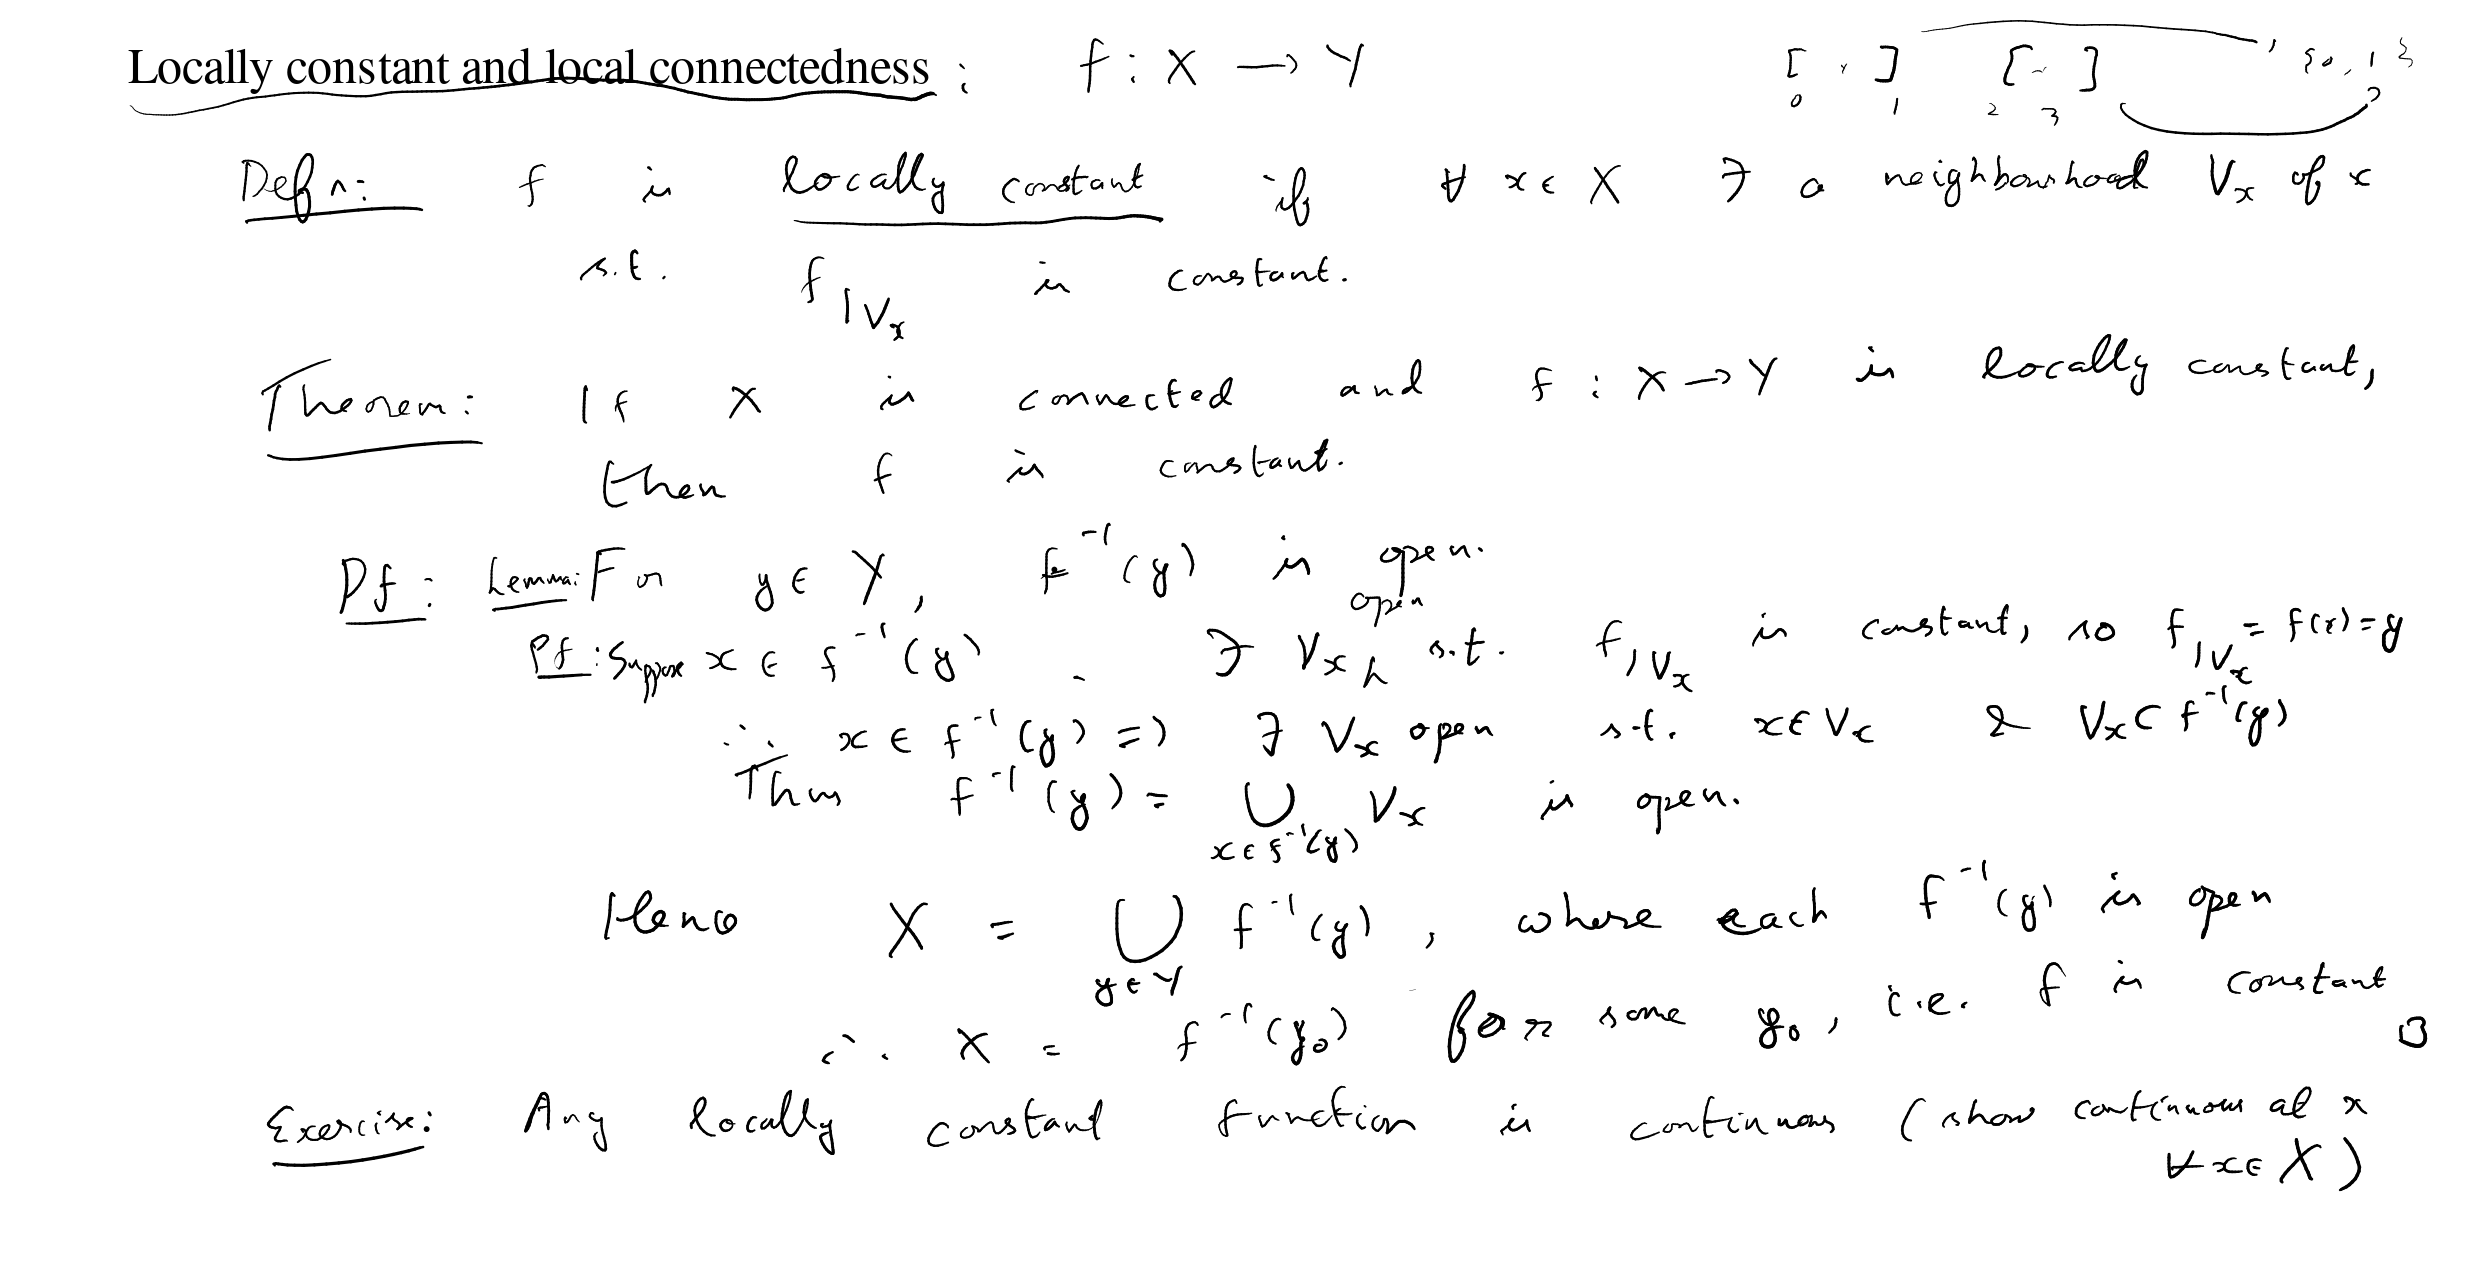 Locally constant and local connectedness : f : X → Y [ ] [ ] {0, 1}
0 1 2 3
Defn: f is locally constant if ∀ x ∈ X ∃ a neighbourhood V_x of x
s.t. f|V_x is constant.
Theorem: If X is connected and f : X → Y is locally constant,
then f is constant.
Pf: Lemma: For y ∈ Y, f⁻¹(y) is open.
open
Pf: Suppose x ∈ f⁻¹(y). ∃ V_x s.t. f|V_x is constant, so f|V_x = f(x) = y
∴ x ∈ f⁻¹(y) => ∃ V_x open s.t. x ∈ V_x & V_x ⊂ f⁻¹(y)
Thus f⁻¹(y) = ∪ V_x is open.
x ∈ f⁻¹(y)
Hence X = ∪ f⁻¹(y), where each f⁻¹(y) is open
y ∈ Y
∴ X = f⁻¹(y₀) for some y₀, i.e. f is constant □
Exercise: Any locally constant function is continuous (show continuous at x
∀ x ∈ X)